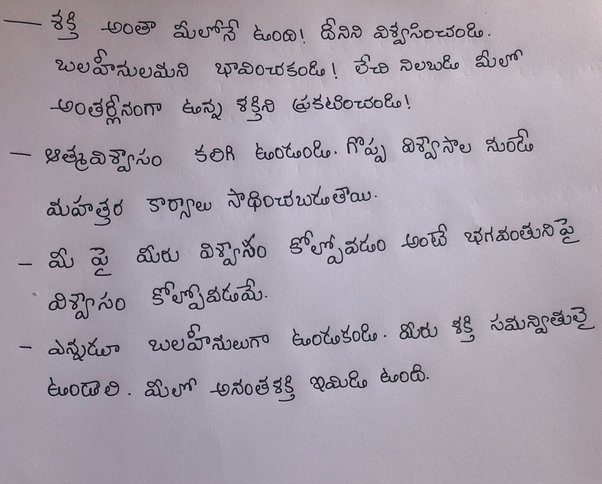 — శక్తి అంతా మీలోనే ఉంది! దీనిని విశ్వసించండి.
బలహీనులమని భావించకండి! లేచి నిలబడి మీలో
అంతర్లీనంగా ఉన్న శక్తిని ప్రకటించండి!
– ఆత్మవిశ్వాసం కలిగి ఉండండి. గొప్ప విశ్వాసాల నుండే
మహత్తర కార్యాలు సాధించబడుతాయి.
– మీ పై మీరు విశ్వాసం కోల్పోవడం అంటే భగవంతునిపై
విశ్వాసం కోల్పోవడమే.
– ఎన్నడూ బలహీనులుగా ఉండకండి. మీరు శక్తి సమన్వితులై
ఉండాలి. మీలో అనంతశక్తి ఇమిడి ఉంది.